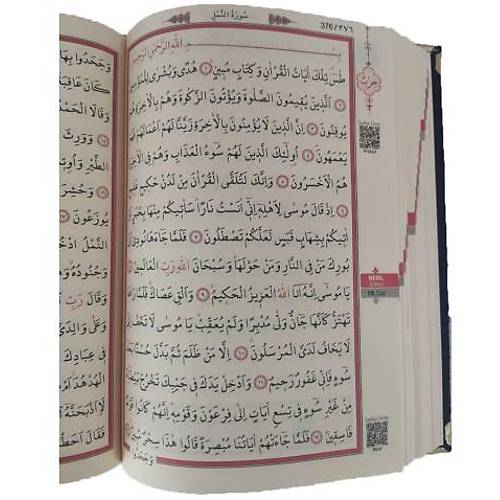 سُورَةُ النَّمْلِ
376/٣٧٦
بِسْمِ اللّٰهِ الرَّحْمٰنِ الرَّحِيمِ
طٰسٓ تِلْكَ اٰيَاتُ الْقُرْاٰنِ وَكِتَابٍ مُبِينٍ ١ هُدًى وَبُشْرٰى لِلْمُؤْمِنِينَ
٢ اَلَّذِينَ يُقِيمُونَ الصَّلٰوةَ وَيُؤْتُونَ الزَّكٰوةَ وَهُمْ بِالْاٰخِرَةِ هُمْ
يُوقِنُونَ ٣ اِنَّ الَّذِينَ لَا يُؤْمِنُونَ بِالْاٰخِرَةِ زَيَّنَّا لَهُمْ اَعْمَالَهُمْ فَهُمْ
يَعْمَهُونَ ٤ اُولٰٓئِكَ الَّذِينَ لَهُمْ سُٓوءُ الْعَذَابِ وَهُمْ فِي الْاٰخِرَةِ
هُمُ الْاَخْسَرُونَ ٥ وَاِنَّكَ لَتُلَقَّى الْقُرْاٰنَ مِنْ لَدُنْ حَكِيمٍ عَلِيمٍ
٦ اِذْ قَالَ مُوسٰى لِاَهْلِهٓ اِنِّٓي اٰنَسْتُ نَارًا سَاٰتِيكُمْ مِنْهَا بِخَبَرٍ اَوْ
اٰتِيكُمْ بِشِهَابٍ قَبَسٍ لَعَلَّكُمْ تَصْطَلُونَ ٧ فَلَمَّا جَٓاءَهَا نُودِيَ اَنْ
بُورِكَ مَنْ فِي النَّارِ وَمَنْ حَوْلَهَا وَسُبْحَانَ اللّٰهِ رَبِّ الْعَالَمِينَ ٨
يَا مُوسٰٓى اِنَّهُٓ اَنَا اللّٰهُ الْعَزِيزُ الْحَكِيمُ ٩ وَاَلْقِ عَصَاكَ فَلَمَّا رَاٰهَا
تَهْتَزُّ كَاَنَّهَا جَٓانٌّ وَلّٰى مُدْبِرًا وَلَمْ يُعَقِّبْ يَا مُوسٰى لَا تَخَفْ اِنِّي
لَا يَخَافُ لَدَيَّ الْمُرْسَلُونَ ١٠ اِلَّا مَنْ ظَلَمَ ثُمَّ بَدَّلَ حُسْنًا بَعْدَ
سُٓوءٍ فَاِنِّي غَفُورٌ رَحِيمٌ ١١ وَاَدْخِلْ يَدَكَ فِي جَيْبِكَ تَخْرُجْ بَيْضَٓاءَ
مِنْ غَيْرِ سُٓوءٍ فِي تِسْعِ اٰيَاتٍ اِلٰى فِرْعَوْنَ وَقَوْمِهِ اِنَّهُمْ كَانُوا قَوْمًا
فَاسِقِينَ ١٢ فَلَمَّا جَٓاءَتْهُمْ اٰيَاتُنَا مُبْصِرَةً قَالُوا هٰذَا سِحْرٌ مُبِينٌ
وَجَحَدُوا
NEML
وَجَحَدُوا بِهَا
كَانَ عَاقِبَةُ
وَقَالَا الْحَمْدُ
وَوَرِثَ
الطَّيْرِ وَاُوتِينَا
وَحُشِرَ
يُوزَعُونَ
النَّمْلُ ادْخُلُوا
وَجُنُودُهُ وَهُمْ
وَقَالَ رَبِّ
وَعَلٰى وَالِدَيَّ
فِي عِبَادِكَ
الْهُدْهُدَ
لَاَاذْبَحَنَّهُٓ
فَقَالَ اَحَطْتُ